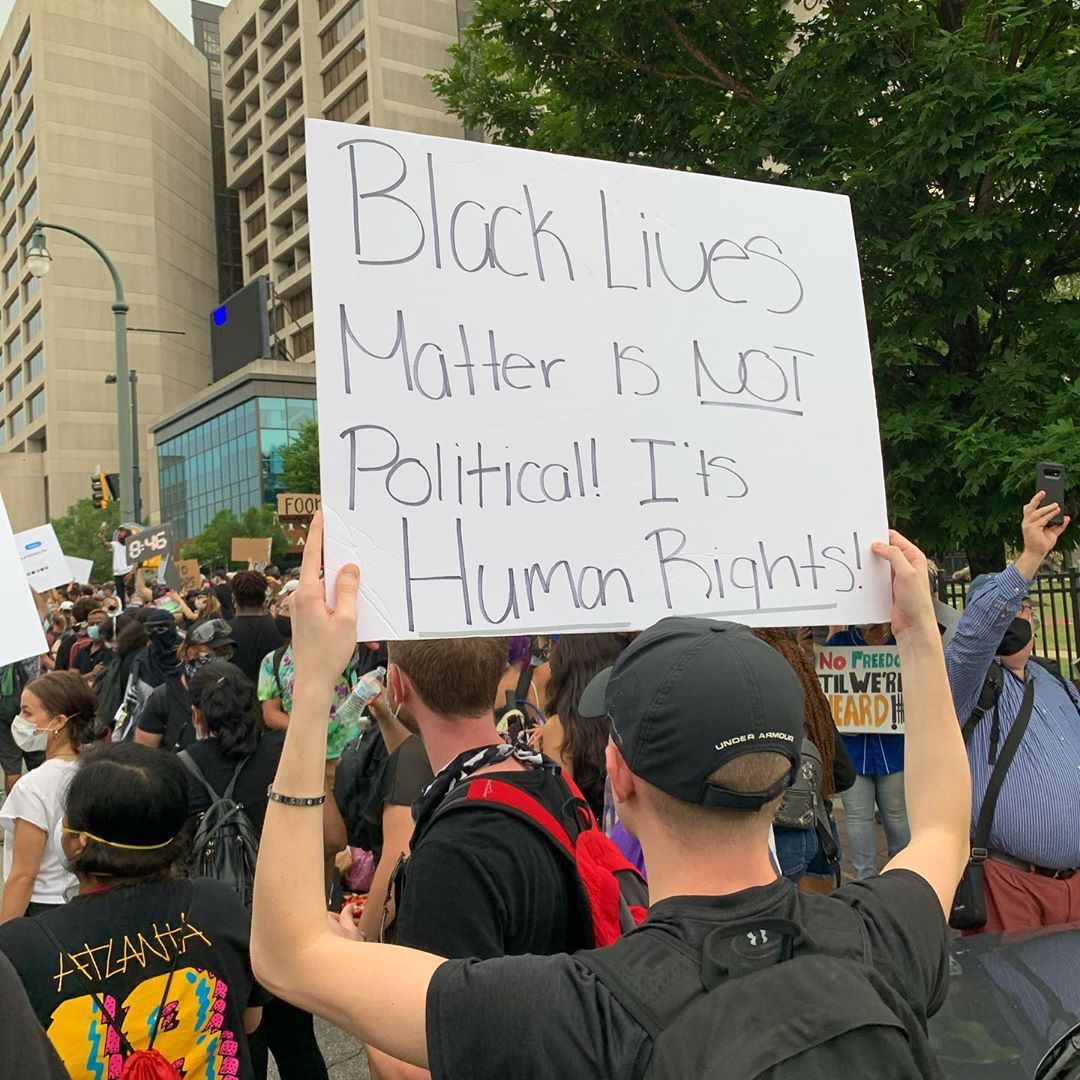 Black Lives
Matter Is NOT
Political! It's
Human Rights!
8:46
FOOD
NO FREEDO
TIL WE'RE
EARD!
UNDER ARMOUR
ATLANTA